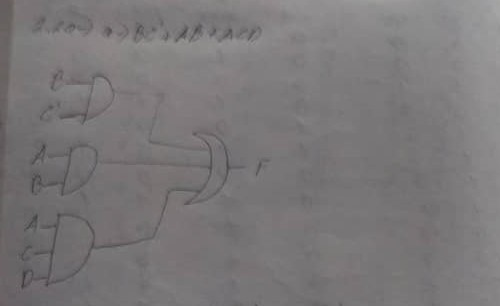 2.20) a) BC'+AB+ACD
B
C'
A
B
F
A
C
D